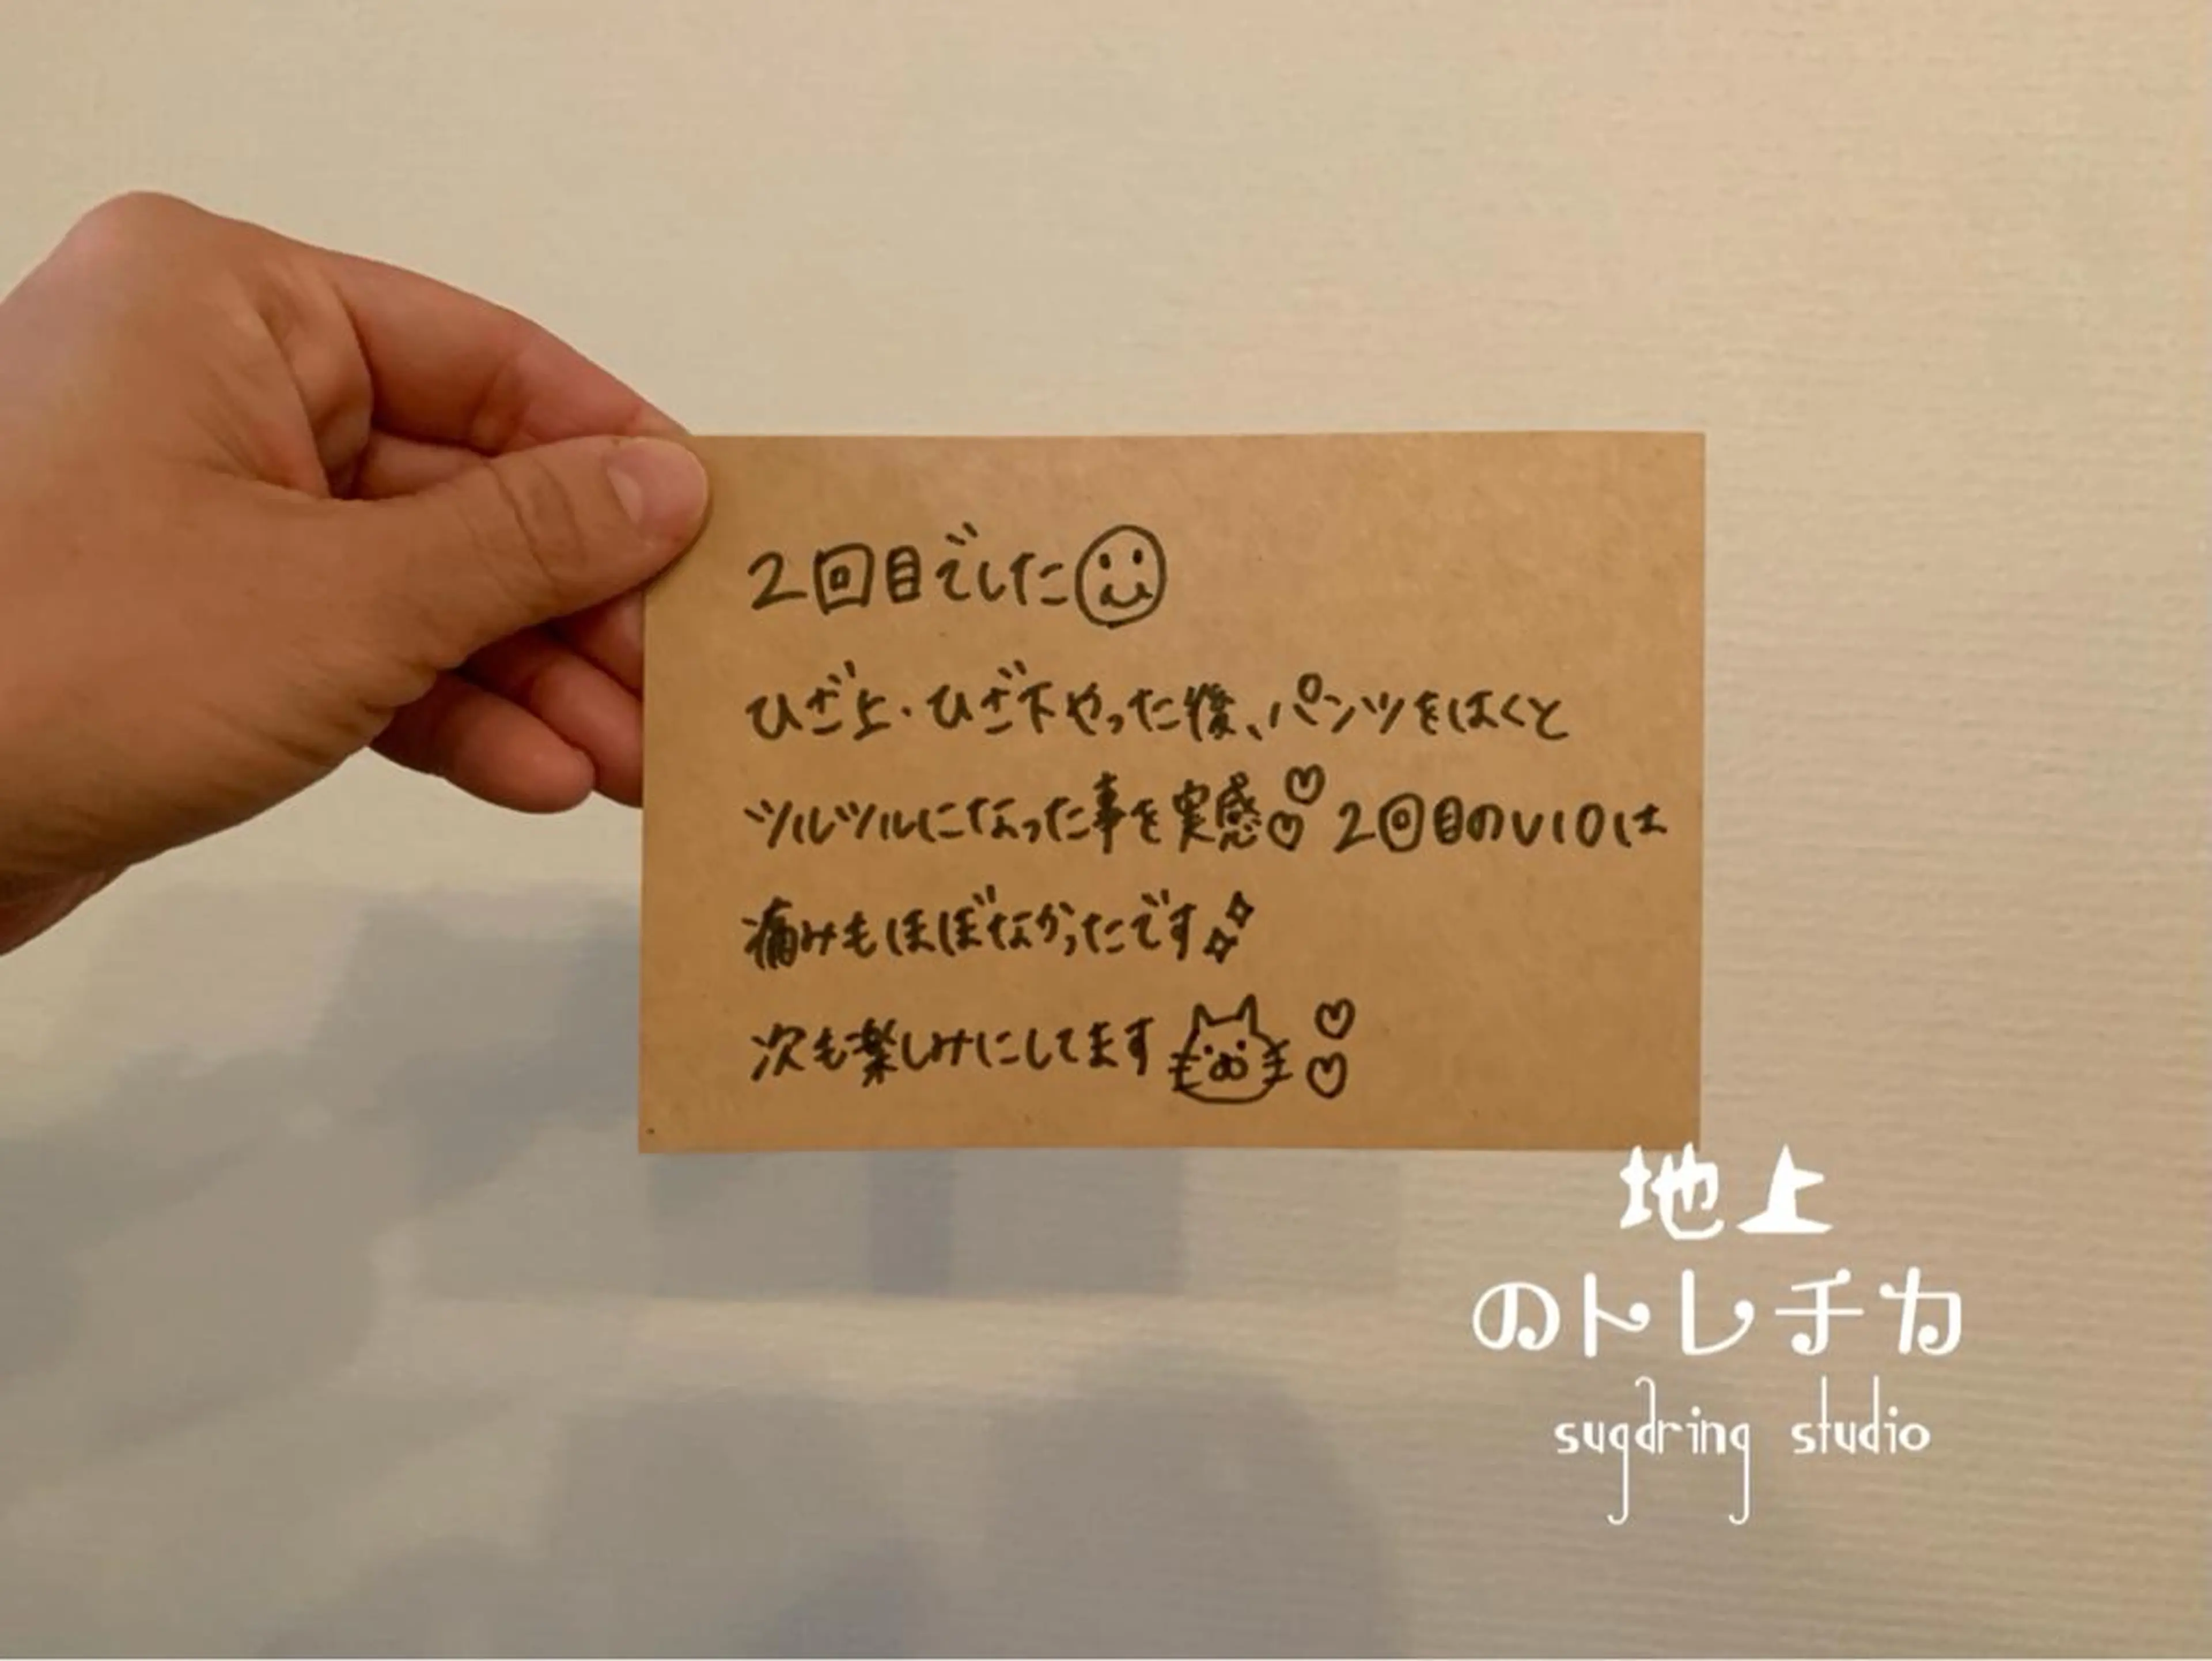 2回目でした
ひざ上・ひざ下やった後、パンツをはくと
ツルツルになった事を実感♡♡2回目のVIOは
痛みもほぼなかったです
次も楽しみにしてます♡♡
地上
のトレチカ
sugaring studio